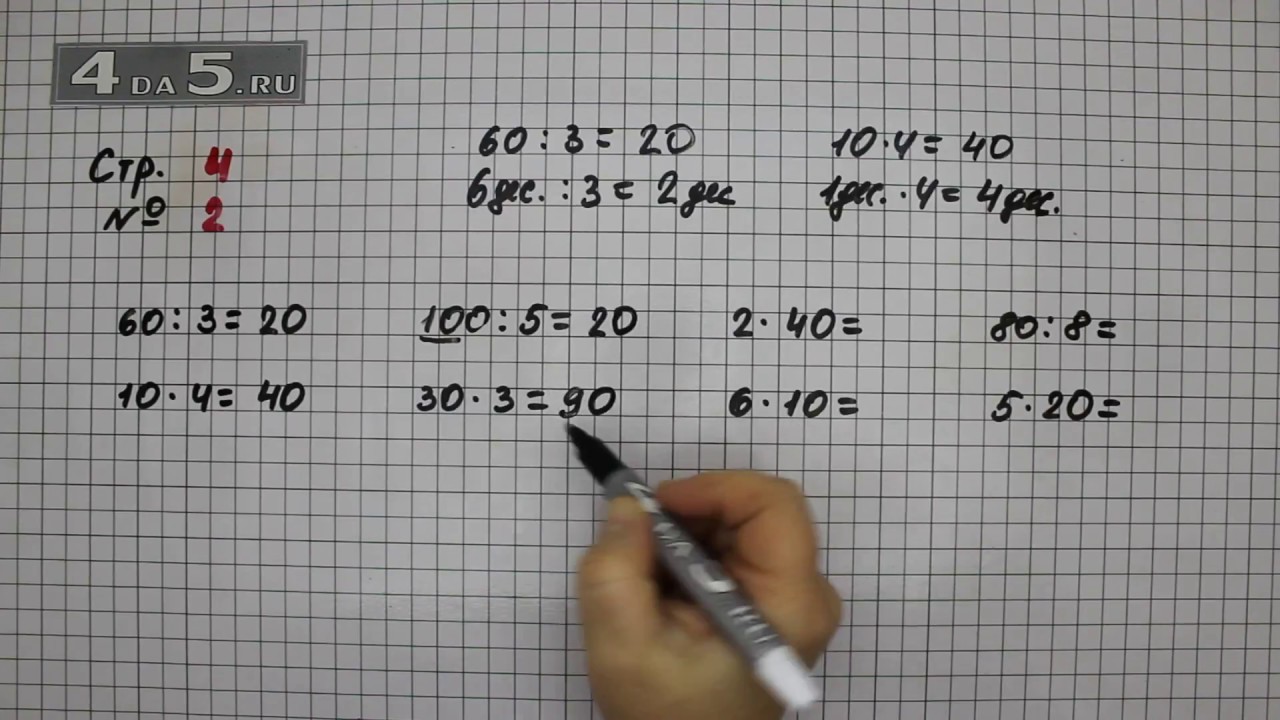 4 DA 5.RU
Стр. 4
№ 2
60 : 3 = 20 10 · 4 = 40
6 дес. : 3 = 2 дес 1 дес. · 4 = 4 дес.
60 : 3 = 20 100 : 5 = 20 2 · 40 = 80 : 8 =
10 · 4 = 40 30 · 3 = 90 6 · 10 = 5 · 20 =